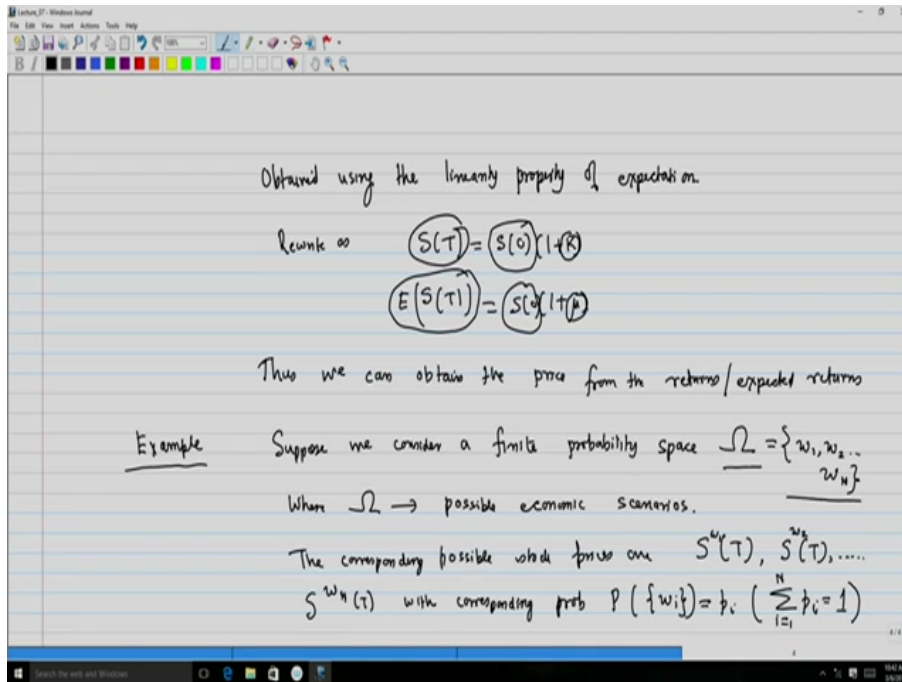 Lecture_07 - Windows Journal
File Edit View Insert Actions Tools Help
B I
Obtained using the linearity property of expectation
Rewrite as S(T) = S(0)(1+R)
E(S(T)) = S(0)(1+μ)
Thus we can obtain the price from the returns/expected returns
Example Suppose we consider a finite probability space Ω = {w₁, w₂ ..
w_N}
Where Ω → possible economic scenarios.
The corresponding possible stock prices are S^{w₁}(T), S^{w₂}(T), .....
S^{w_N}(T) with corresponding prob P({w_i}) = p_i (∑_{i=1}^{N} p_i = 1)
Search the web and Windows